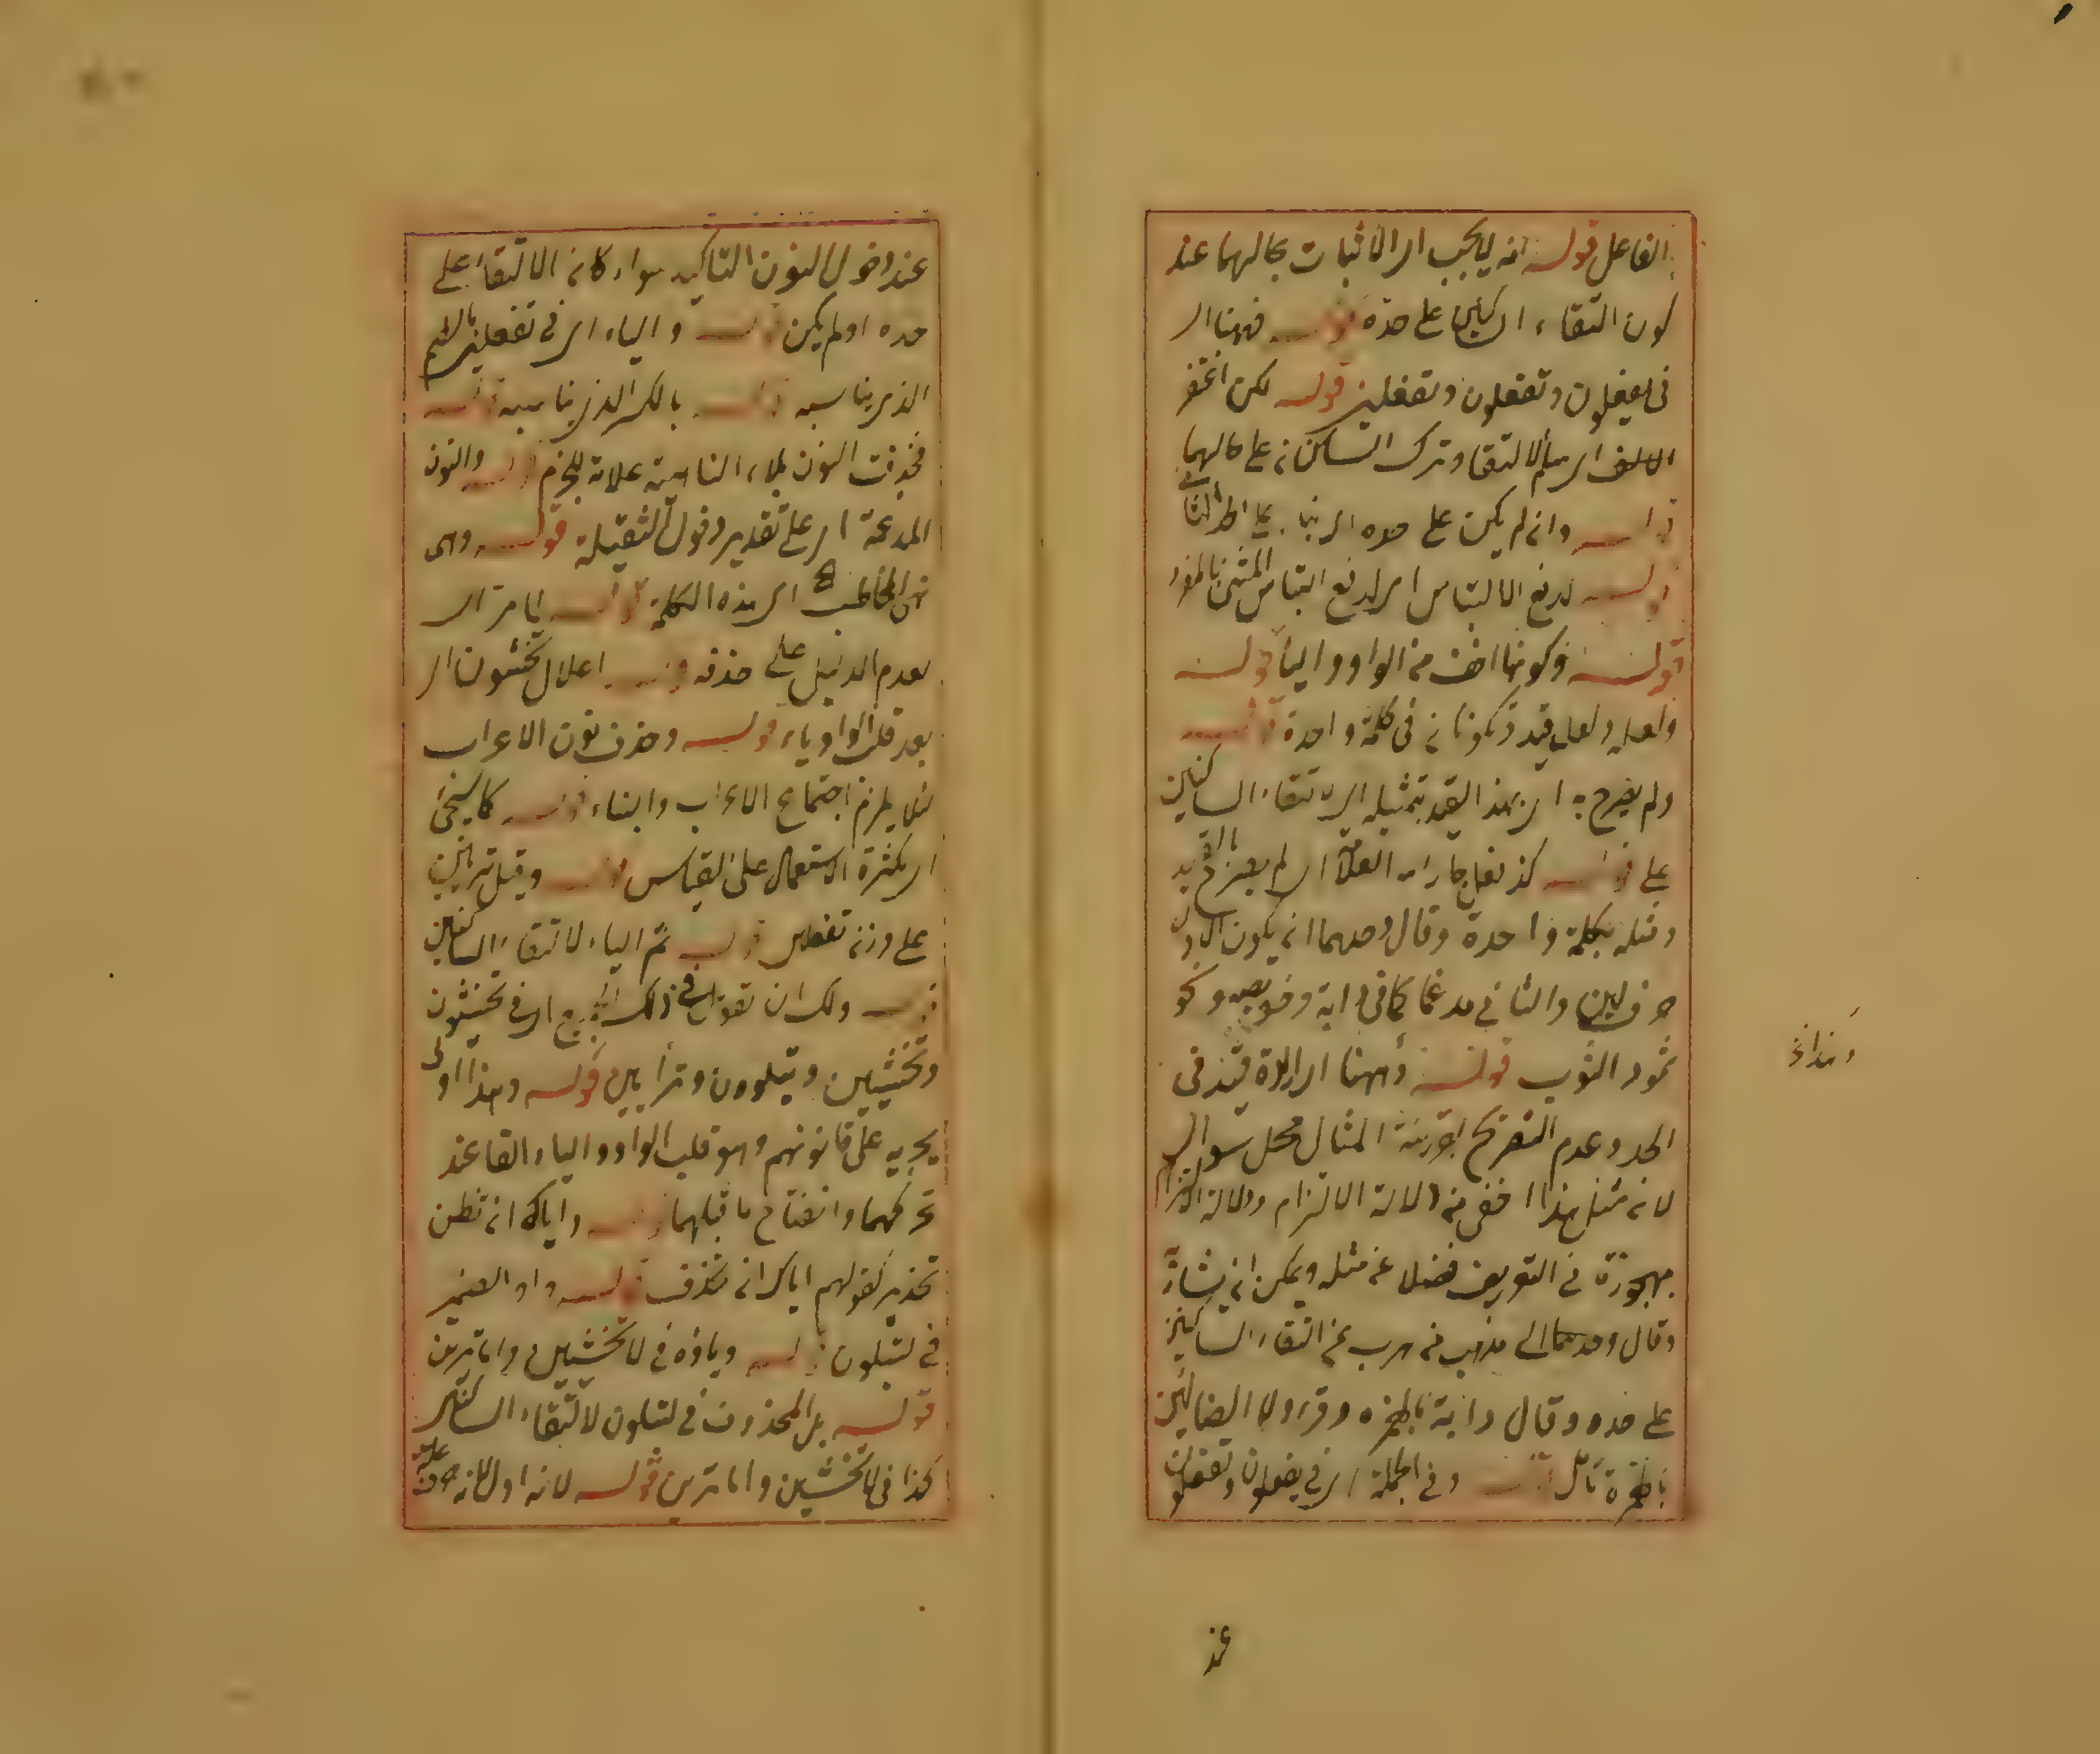 الفاعل قوله انه لا يجب اى الاثبات بحالهما عند
كون التقاء الساكنين على حده قوله فههنا اى
فى يفعلون وتفعلون وتفعلين قوله لكن اغتفر
الالف اى سلم الالتقاء وترك الساكنان على حالهما
قوله وان لم يكن على حده اى بناء على
قوله لدفع الالتباس اى لدفع التباس المثنى بالمفرد
قوله وكونها اخف من الواو والياء قوله
ولعله ولعل قيد كونا فى كلمة واحدة قوله
ولم يصرح به اى بهذا القيد بتمثيله اى التقاء الساكنين
على قوله كذا نقل جار الله العلامة اى لم يصرح بالقيد
ومثله بكلمة واحدة وقال وحدهما ان يكون الاول
حرف لين والثانى مدغما كما فى دابة وخويصة ونحو
تمود الثوب قوله وههنا اى ارادة قيد فى
الحد وعدم التصريح بقرينة المثال محل سؤال
لان مثل هذا اخفى من دلالة الالتزام ودلالة الالتزام
مهجورة فى التعريف فضلا عن مثله ويمكن ان
وقال وحدهما الى مذهب من هرب عن التقاء الساكنين
على حده وقال دابة بالهمزة وقرء ولا الضالين
بالهمزة تأمل قوله وفى الجملة اى فى يفعلون وتفعلون
وهذا
عند
عند دخول النون التاكيد سواء كان الالتقاء على
حده او لم يكن قوله والياء اى فى تفعلين
الذى يناسبه قوله بالكسر الذى يناسبه قوله
فحذفت النون بلاء الناهية علامة للجزم قوله والنون
المدغمة اى على تقدير دخول الثقيلة قوله وهى
نهى المخاطب اى هذه الكلمة قوله لما مر اى
لعدم الدليل على حذفه قوله اعلال تخشون اى
بعد قلب الواو ياء قوله وحذف نون الاعراب
لئلا يلزم اجتماع الاعراب والبناء قوله كما سيجئ
اى لكثرة الاستعمال على القياس قوله وقيل ترأين
على وزن تفعلين قوله ثم الياء لالتقاء الساكنين
قوله ولك ان تقول فى ذلك اى فى تخشون
وتخشين وتبلوون وترأيين قوله وهذا اولى
يجريه على قانونهم وهو قلب الواو والياء الفا عند
تحركهما وانفتاح ما قبلهما قوله واياك ان تظن
تحذير كقولهم اياك ان تحذف قوله واو الضمير
فى لتبلون قوله وياؤه فى لا تخشين واما ترين
قوله بل المحذوف فى لتبلون لالتقاء الساكنين
كذا فى لا تخشين واما ترين قوله لانه اولى لانه